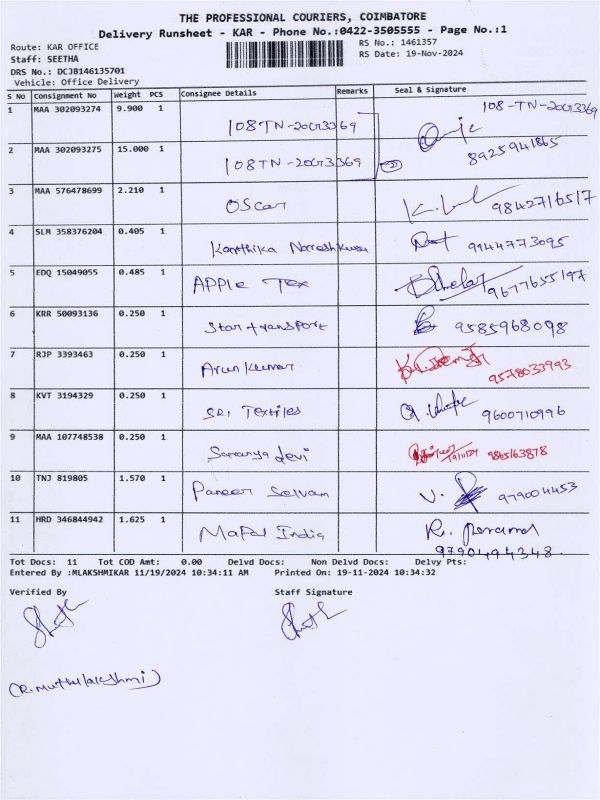 THE PROFESSIONAL COURIERS, COIMBATORE
Delivery Runsheet - KAR - Phone No.:0422-3505555 - Page No.:1
Route: KAR OFFICE
RS No.: 1461357
Staff: SEETHA
RS Date: 19-Nov-2024
DRS No.: DCJB146135701
Vehicle: Office Delivery
S No Consignment No Weight PCS Consignee Details Remarks Seal & Signature
1 MAA 302093274 9.900 1 108TN-20G3369 108-TN-20G3369
2 MAA 302093275 15.000 1 108TN-20G3369 ② 8925941865
3 MAA 576478699 2.210 1 Oscar 9842716517
4 SLM 358376204 0.405 1 Karthika Nareshkumar 9944773095
5 EDQ 15049055 0.485 1 APPle Tex 9677655197
6 KRR 50093136 0.250 1 Star transport 9585968098
7 RJP 3393463 0.250 1 Arun kumar 9578033993
8 KVT 3194329 0.250 1 SRI Textiles 9600710996
9 MAA 107748538 0.250 1 Saranya devi 19/11/24 9865163878
10 TNJ 819805 1.570 1 Paneer Selvam 979004453
11 HRD 346844942 1.625 1 Mafal India K. Perumal
9790494348.
Tot Docs: 11 Tot COD Amt: 0.00 Delvd Docs: Non Delvd Docs: Delvy Pts:
Entered By :MLAKSHMIKAR 11/19/2024 10:34:11 AM Printed On: 19-11-2024 10:34:32
Verified By Staff Signature
(R.Muthulakshmi)